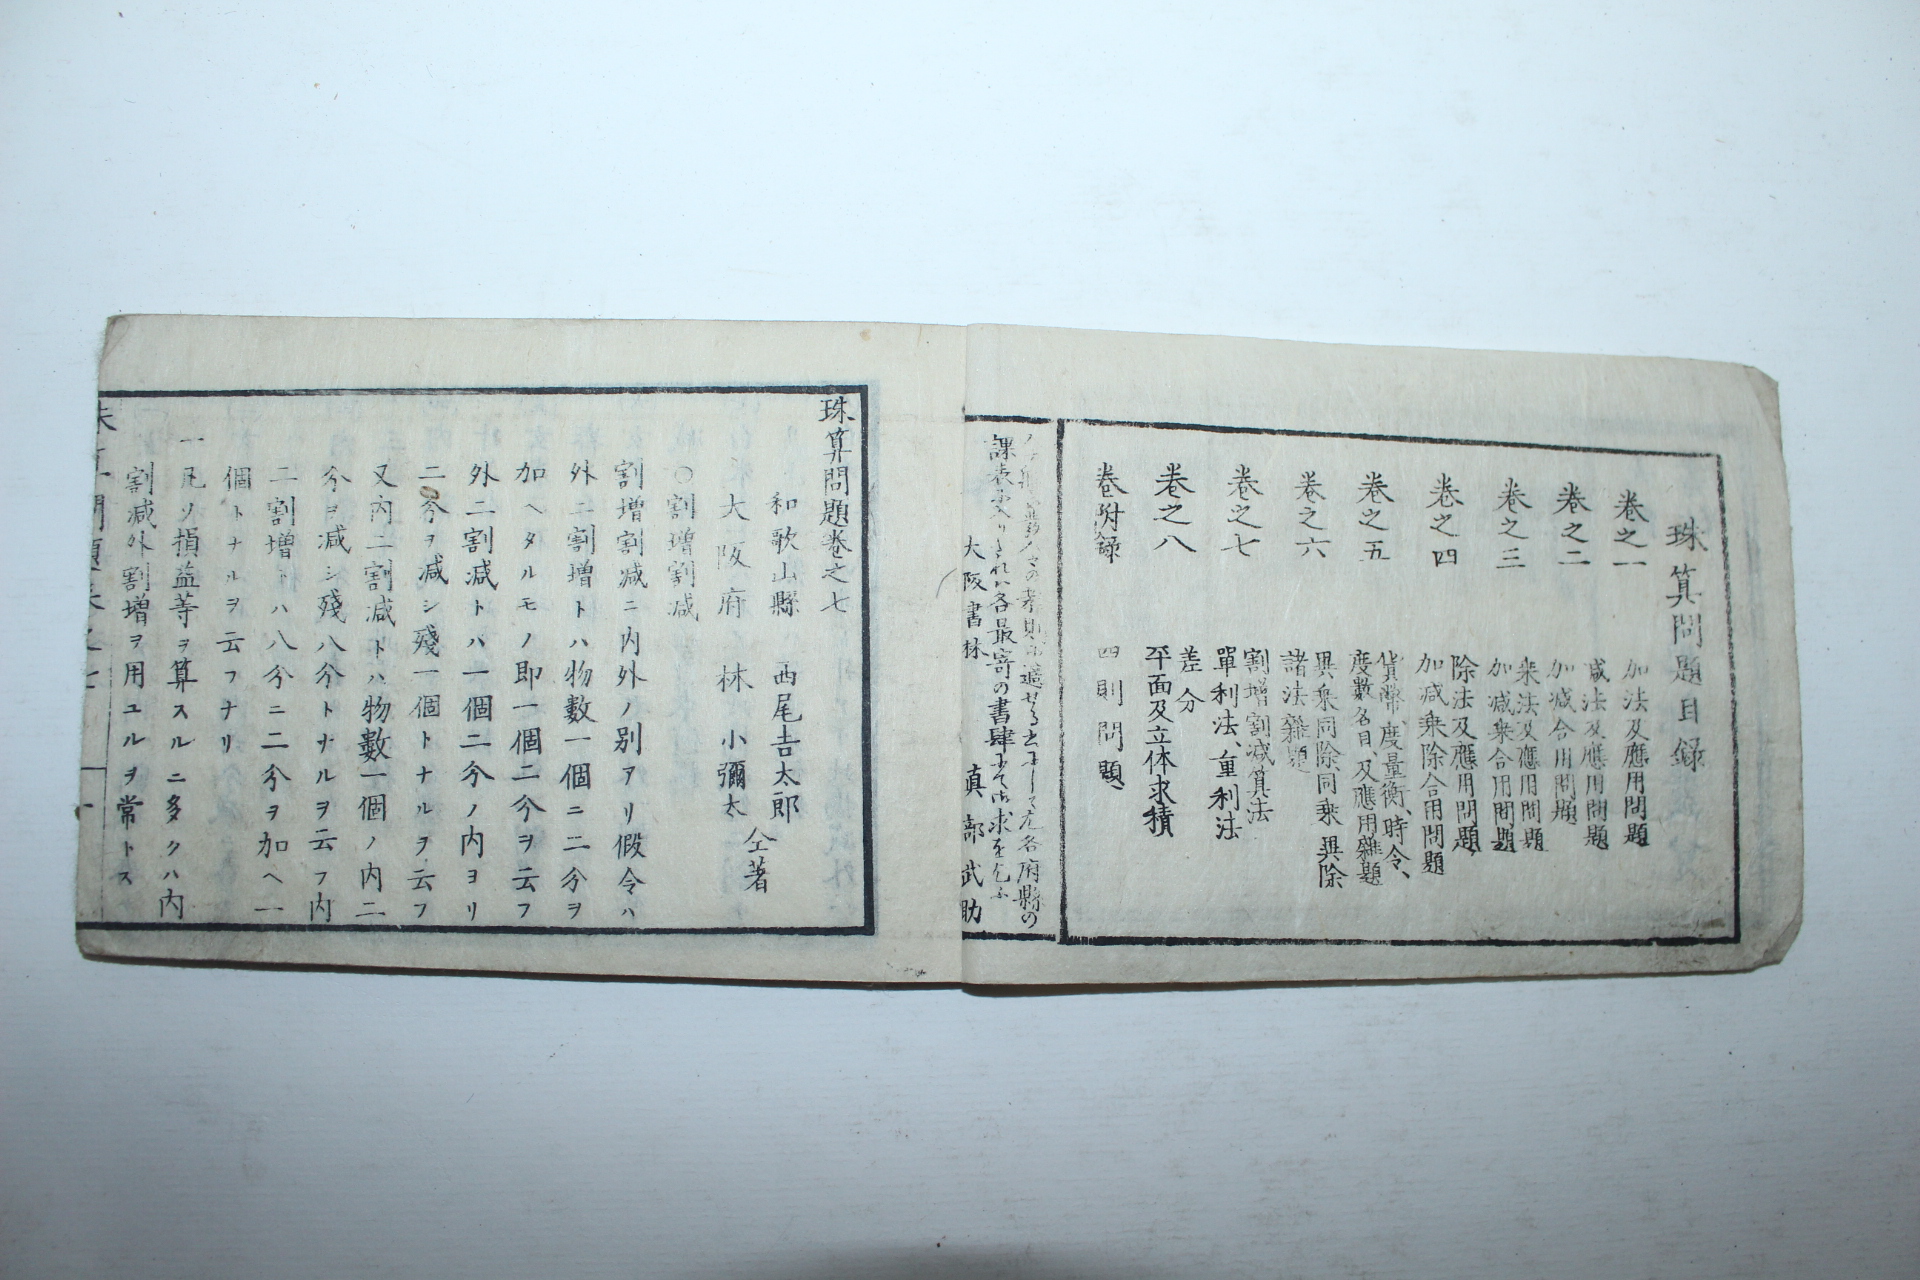 珠算問題目録
巻之一 加法及應用問題
巻之二 減法及應用問題
加減合用問題
巻之三 乗法及應用問題
加減乗合用問題
巻之四 除法及應用問題
加減乗除合用問題
巻之五 貨幣、度量衡、時令、
度數名目、及應用雜題
巻之六 異乗同除同乗異除
諸法雜題
巻之七 割増割減算法
單利法、重利法
巻之八 差分
平面及立体求積
巻附録 四則問題
各府縣の
各最寄の書肆
求を乞ふ
大阪書林 真部武助
珠算問題巻之七
和歌山縣 西尾吉太郎
大阪府 林小彌太
仝著
○割増割減
割増割減ニ内外ノ別アリ假令ハ
外二割増トハ物數一個ニ二分ヲ
加ヘタルモノ即一個二分ヲ云フ
外二割減トハ一個二分ノ内ヨリ
二分ヲ減シ殘一個トナルヲ云フ
又内二割減トハ物數一個ノ内二
分ヲ減シ殘八分トナルヲ云フ内
二割増トハ八分ニ二分ヲ加ヘ一
個トナルヲ云フナリ
一凡ソ損益等ヲ算スルニ多クハ内
割減外割増ヲ用ユルヲ常トス
珠算問題巻之七 一